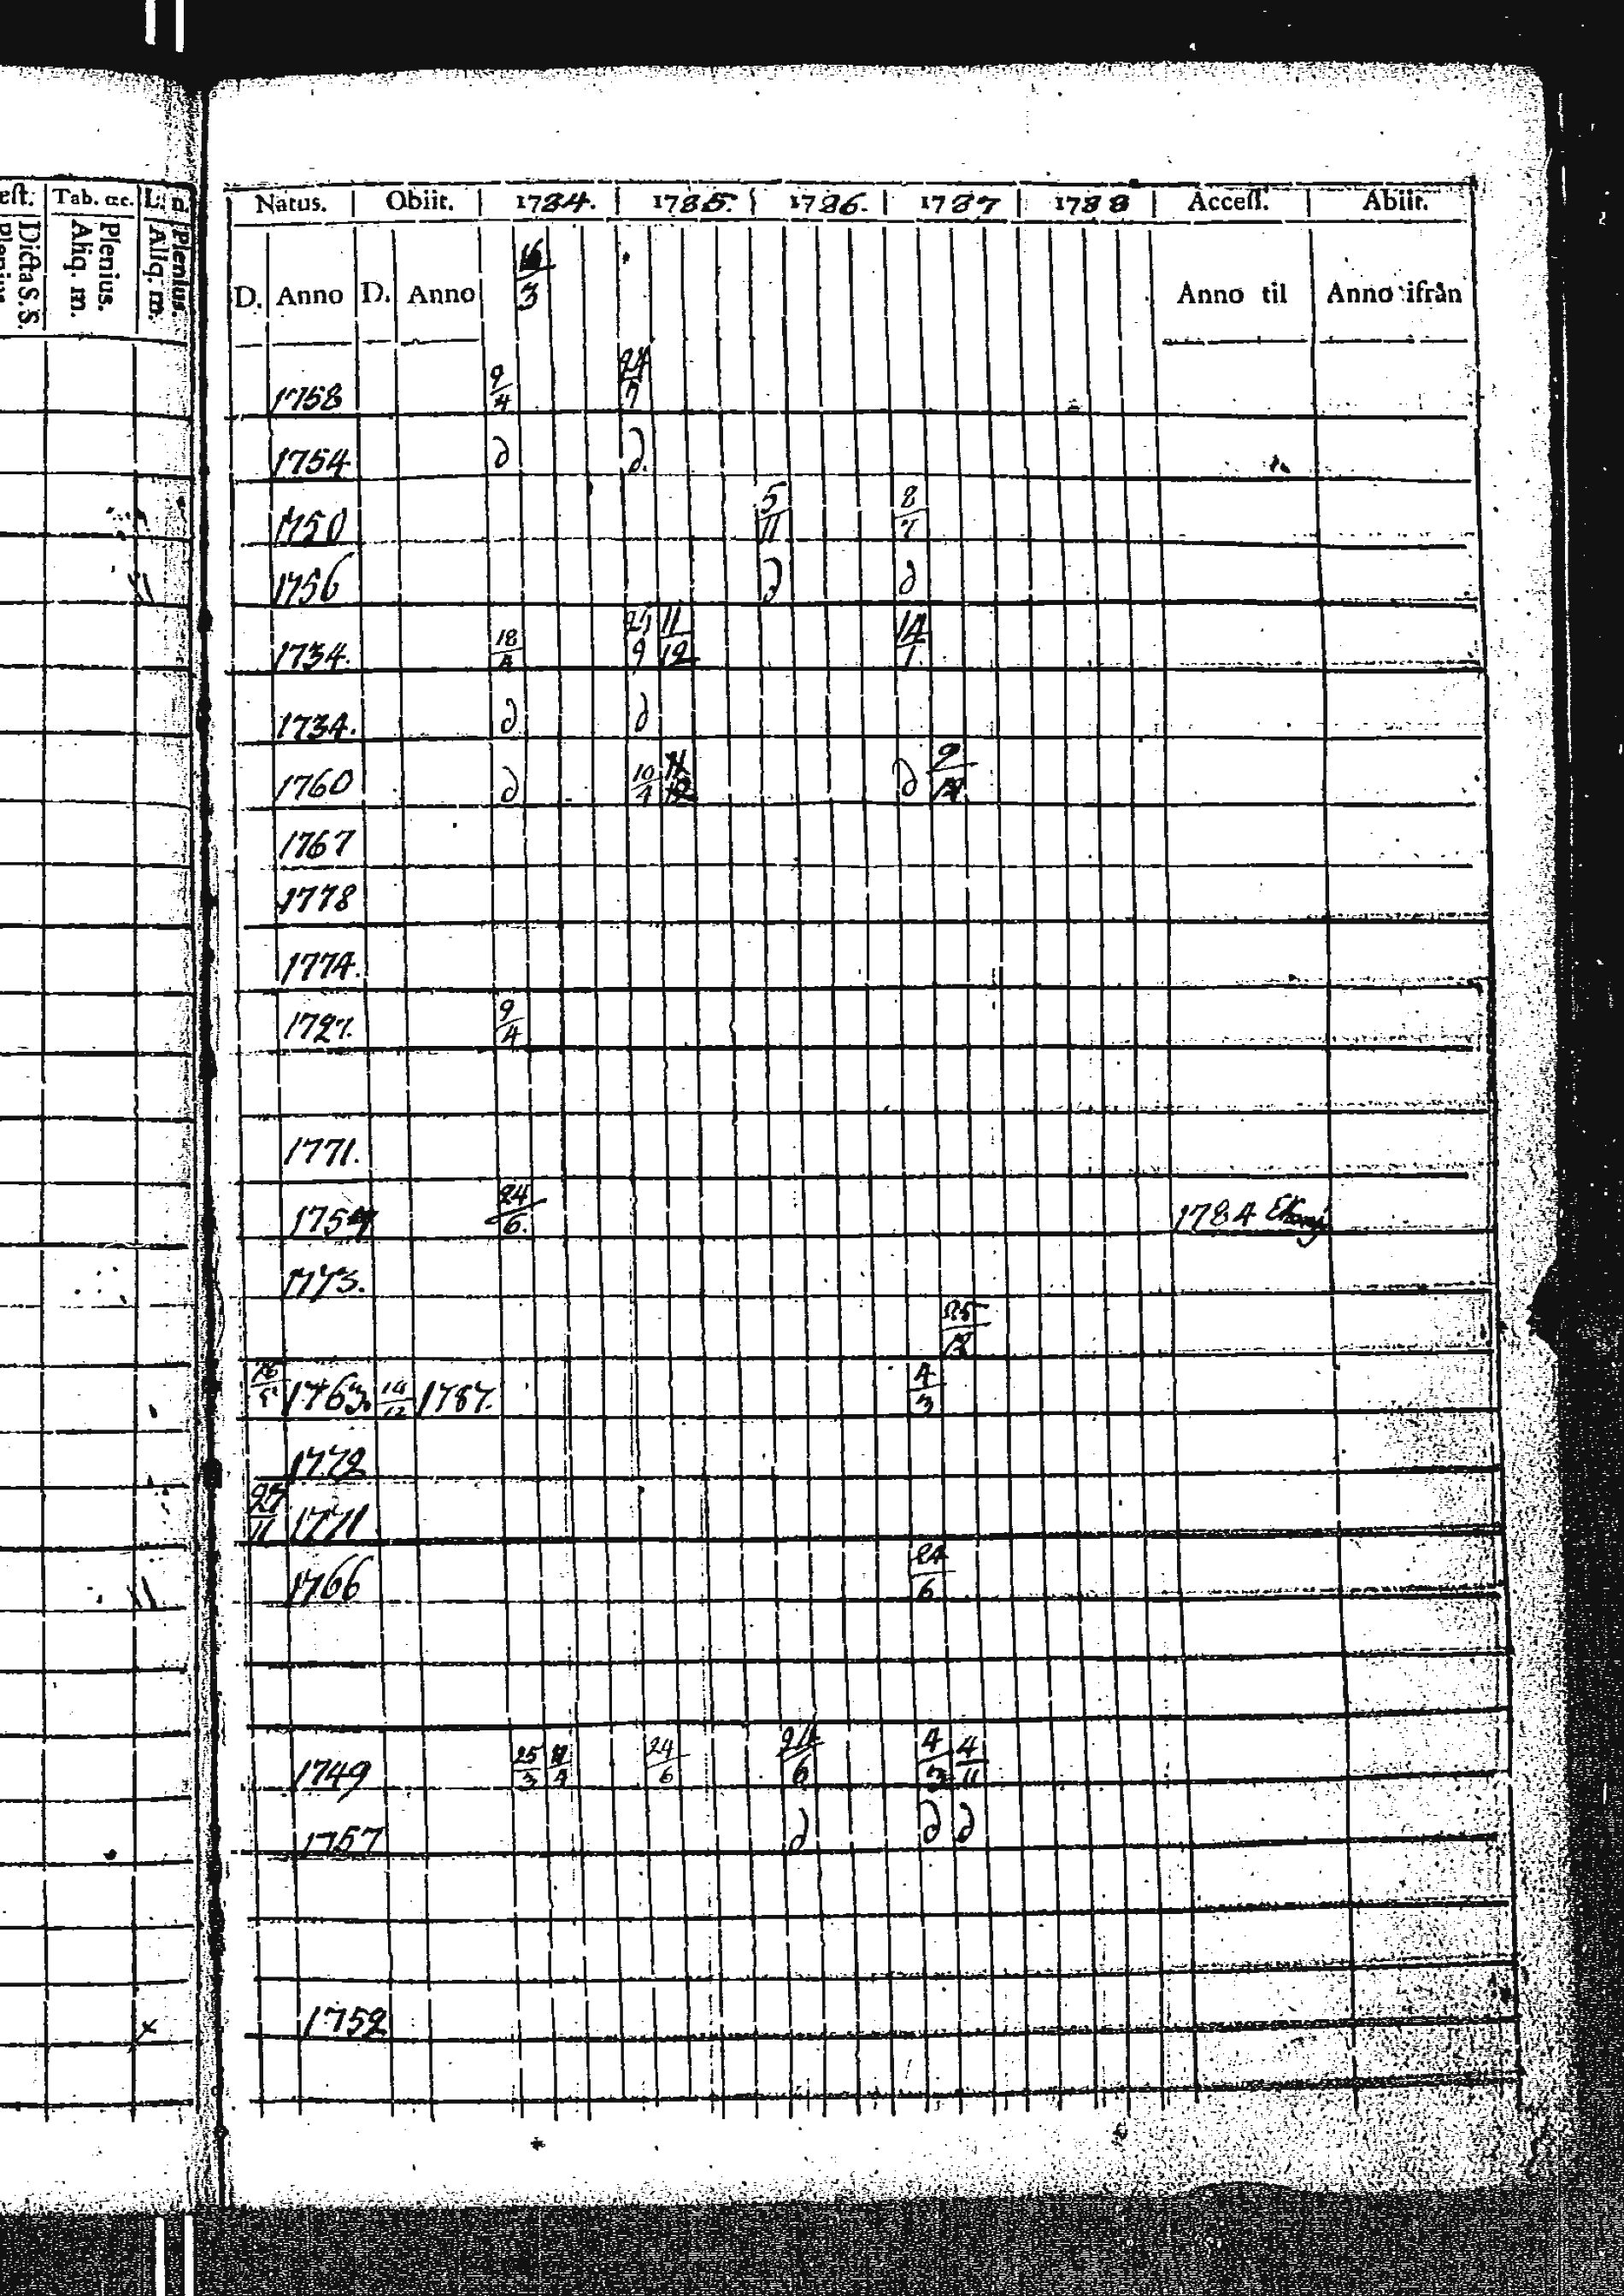 est. Tab. &c. L. n.
Dicta S. S.
Plenius.
Aliq. m.
Plenius.
Aliq. m.
Natus. Obiit. 1784. 1785. 1786. 1787 1788 Access. Abiit.
D. Anno D. Anno 16/3 Anno til Anno ifrån
1758 9/4 24/7
1754 d d.
1750 5/11 8/7
1756 d d
1734. 18/4 24/9 11/12 14/1.
1734. d d
1760 d 10/4 11/12 d 9/12
1767
1778
1774.
1727. 9/4
1771.
1754 24/6. 1784
1773.
25/12
1763 14/12 1787. 4/3
1772
27/11 1771
1766 24/6
1749 25/3 24/6 24/6 4/3 4/11
1757 d d d
1752
x